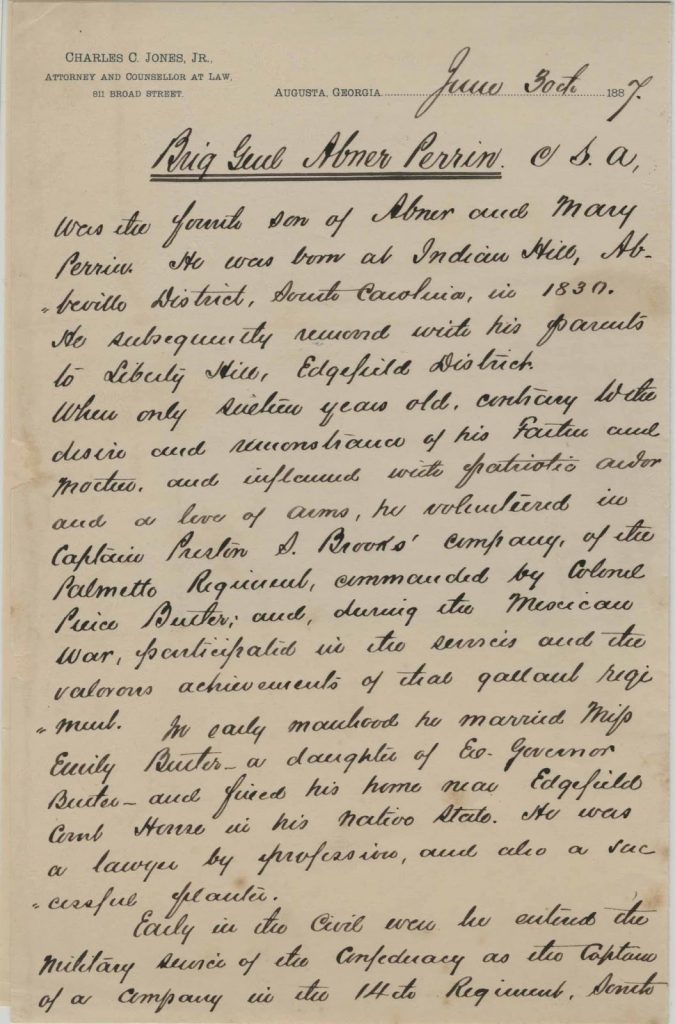 CHARLES C. JONES, JR.,
ATTORNEY AND COUNSELLOR AT LAW,
811 BROAD STREET.
AUGUSTA, GEORGIA June 30th 1887.
Brig Genl Abner Perrin. C S. A,
Was the fourth son of Abner and Mary
Perrin. He was born at Indian Hill, Ab-
"beville District, South Carolina, in 1830.
He subsequently removed with his parents
to Liberty Hill, Edgefield District.
When only sixteen years old, contrary to the
desire and remonstrance of his Father and
Mother, and inflamed with patriotic ardor
and a love of arms, he volunteered in
Captain Preston S. Brooks' company, of the
Palmetto Regiment, commanded by Colonel
Pierce Butler; and, during the Mexican
War, participated in the services and the
valorous achievements of that gallant regi
"ment. In early manhood he married Miss
Emily Butler – a daughter of Ex-Governor
Butler – and fixed his home near Edgefield
Court House in his native State. He was
a lawyer by profession, and also a suc
"cessful planter.
Early in the Civil war he entered the
military service of the Confederacy as the Captain
of a company in the 14th Regiment, South